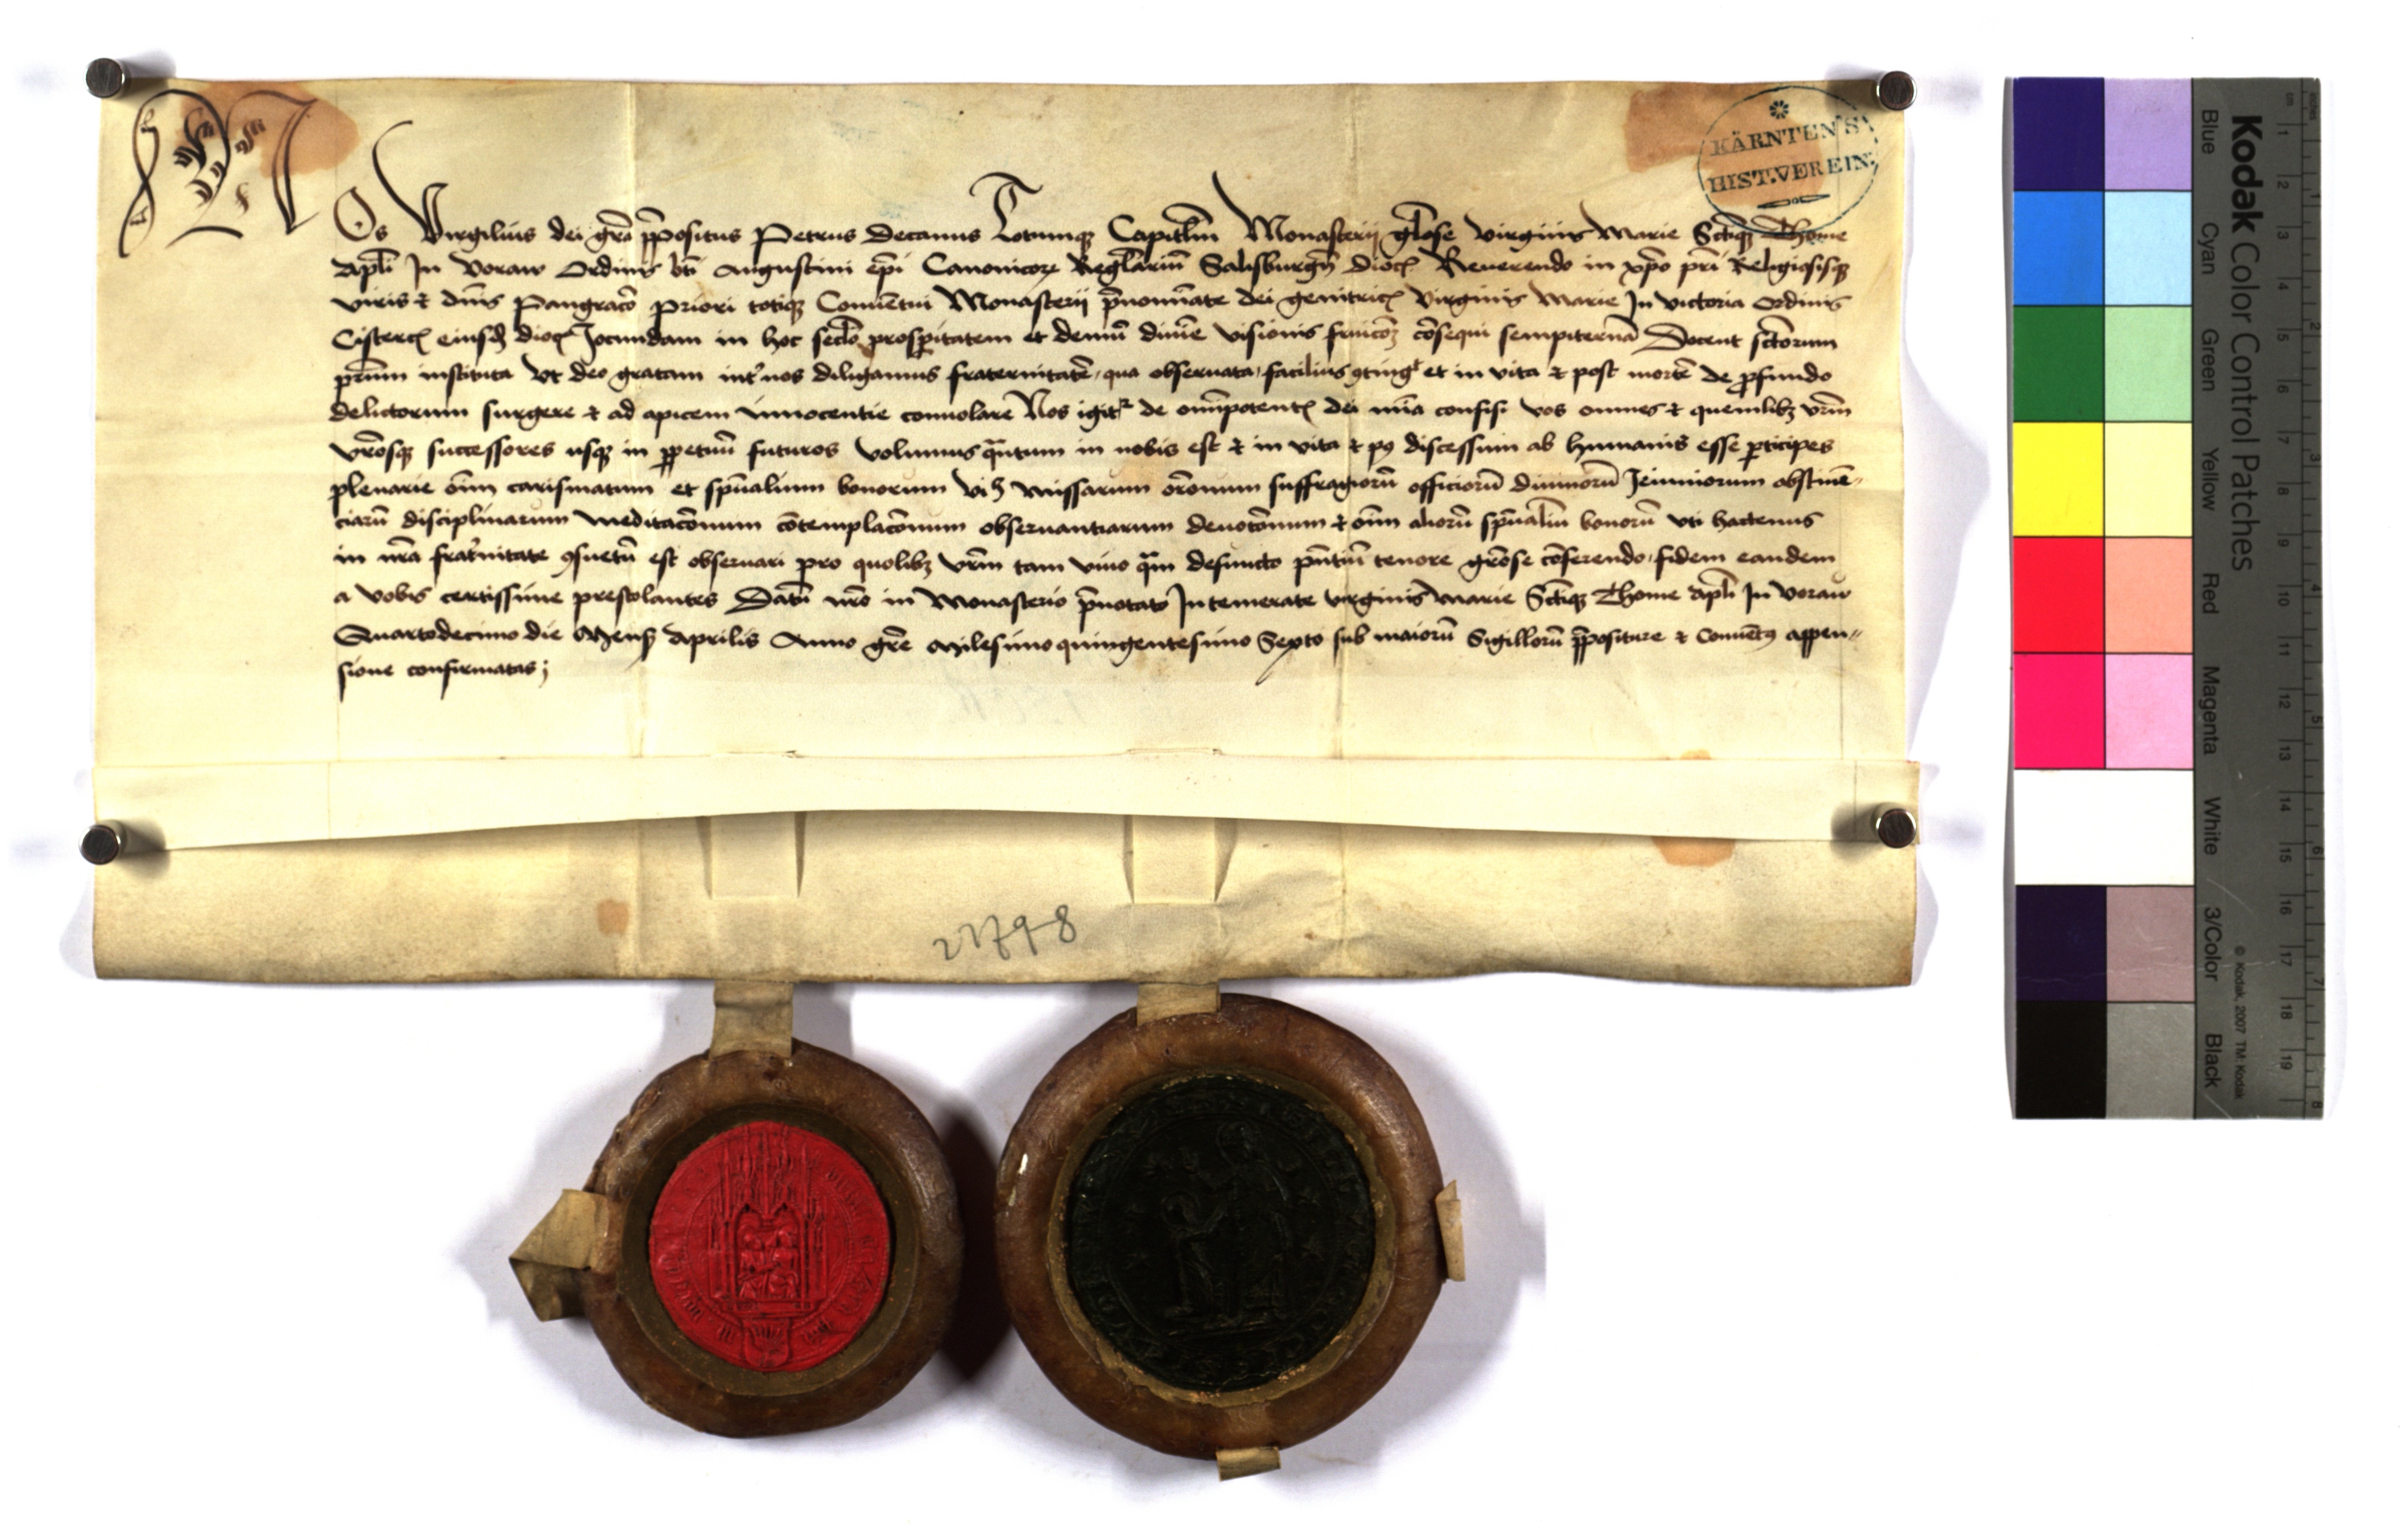 NOs Virgilius dei grā p̄positus Petrus Decanus Totumqꝫ Capitlm̄ Monasterij gl̄ose virginis Marie Sctiqꝫ Thome
Apli In Voraw Ordinis bti Augustini epi Canonicorꝝ Reglariū Salisburgn̄ dioc Reuerendo in xp̄o pri Religiosisqꝫ
viris & dnis Pangraco Priori totiqꝫ Conuētui Monasterij p̄nominate dei genitricꝭ virginis Marie In victoria Ordinis
Cisterc eiusdꝫ dioc Jocundam in hoc sec̄lo prosp̱itatem et demū diuīe visionis fruicoꝫ cōsequi sempiternā Docent sctorum
prum̄ instituta Vt deo gratam int̓ nos diligamus fraternitatē, qua obseruata, facilius ꝯting̓ et in vita & post mortē de ꝓfundo
delictorum surgere & ad apicem innocentie conuolare Nos igitr̓ de omipotentꝭ dei mīa confisi vos omnes & quemlibꝫ vrm̄
vrōsqꝫ successores usqꝫ in ꝑpetuū futuros volumus qᵃntum in nobis est & in vita & pꝰ discessum ab humanis esse ꝑticipes
plenarie oīm carismatum et sp̄ualium bonorum vicꝫ missarum orōnum suffragiorū officiorū diuinorū Jeiuniorum abstinē-
ciarū disciplinarum meditacōnum cōtemplacōnum obseruantiarum deuotōnum & oīm aliorū sp̄ualiū bonorū vti hactenus
in nrā frat̓nitate ꝯsuetū est obseruari pro quolibꝫ vrm̄ tam viuo qᵃm defuncto pn̄tiū tenore grōse cōferendo, fidem eandem
a vobis certissime prestolantes Datū nrō in Monasterio p̄notato Intemerate virginis Marie Sctiqꝫ Thome Apli In Voraw
Quartodecimo die Mensꝭ Aprilis Anno grē Milesimo quingentesimo Sexto sub maiorū Sigillorū p̄positure & Conuētꝰ appen-
sione confirmatas;
KÄRNTEN'S
HIST.VEREIN.
21798
Kodak Color Control Patches
Blue Cyan Green Yellow Red Magenta White 3/Color Black
© Kodak, 2007 TM: Kodak
cm 1 2 3 4 5 6 7 8 9 10 11 12 13 14 15 16 17 18 19
inches 1 2 3 4 5 6 7 8